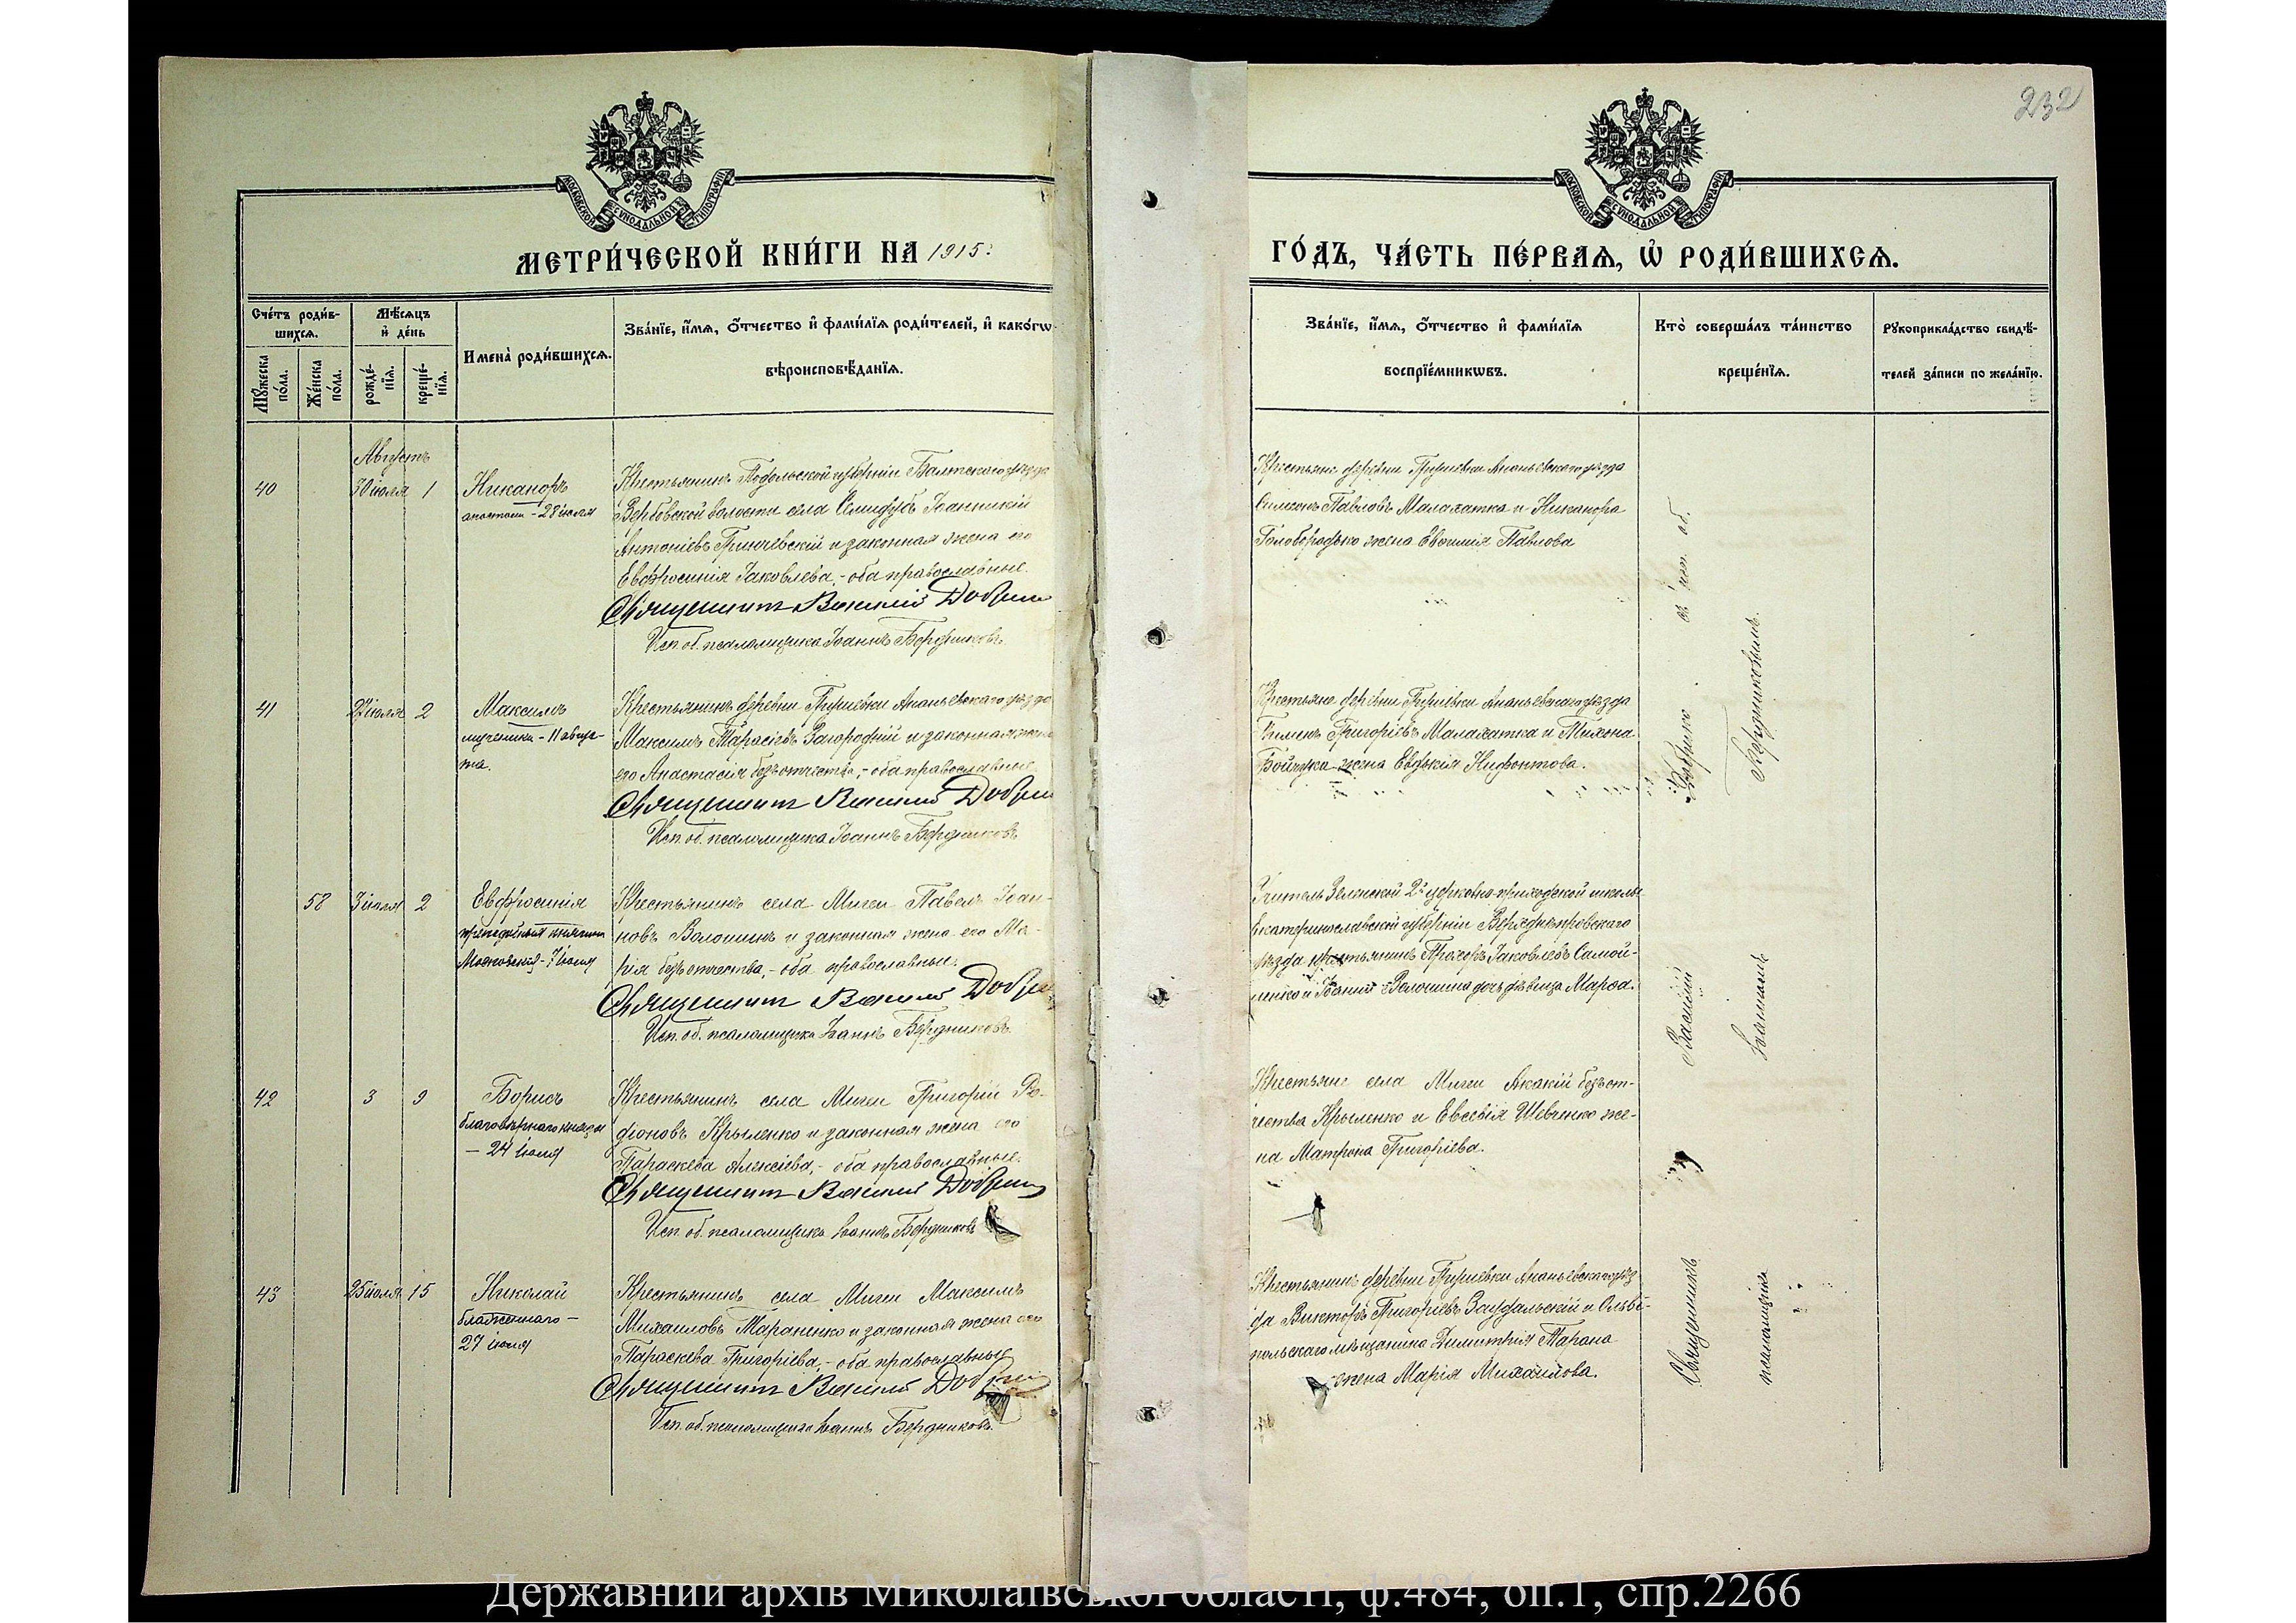 232
МОСКОВСКОЙ СѴНОДАЛЬНОЙ ТИПОГРАФІИ
МОСКОВСКОЙ СѴНОДАЛЬНОЙ ТИПОГРАФІИ
МЕТРИ́ЧЕСКОЙ КНИ́ГИ НА 1915:
ГО́ДЪ, ЧА́СТЬ ПЕ́РВАѦ, Ѡ҆ РОДИ́ВШИХСѦ.
Сче́тъ роди́в-
шихсѧ.
Мꙋ́жеска по́ла.
Же́нска по́ла.
Мѣ́сѧцъ
и҆ де́нь
рожде́-нїѧ.
креще́-нїѧ.
Имена̀ роди́вшихсѧ.
Зва́нїе, и҆́мѧ, ѻ҆́тчество и҆ фами́лїѧ роди́телей, и҆ како́гѡ
вѣроисповѣ́данїѧ.
Зва́нїе, и҆́мѧ, ѻ҆́тчество и҆ фами́лїѧ
воспрїе́мникѡвъ.
Кто̀ соверша́лъ та́инство
креще́нїѧ.
Рꙋкоприкла́дство свидѣ́-
телей за́писи по жела́нїю.
Августъ
40 30 іюля 1 Никаноръ
апостола - 28 іюля
Крестьянинъ Подольской губерніи Балтскаго уѣзда
Вербовской волости села Семидубъ Іоанникій
Антоніевъ Гринчевскій и законная жена его
Евфросинія Іаковлева, - оба православные.
Священникъ Василій Добрин
Исп. об. псаломщика Іоаннъ Бердниковъ.
Крестьяне деревни Гуриевки Ананьевскаго уѣзда
Симеонъ Павловъ Малахатка и Никанора
Голобородько жена Евфимія Павлова
41 27 іюля 2 Максимъ
мученика - 11 авгус-
та.
Крестьянинъ деревни Гуриевки Ананьевскаго уѣзда
Максимъ Тарасіевъ Загородній и законная жена
его Анастасія безъ отчества, - оба православные
Священникъ Василій Добрин
Исп. об. псаломщика Іоаннъ Бердниковъ
Крестьяне деревни Гуриевки Ананьевскаго уѣзда
Пименъ Григоріевъ Малахатка и Тихона
жена Евдокія Нифонтова.
58 3 іюля 2 Евфросинія
преподобныя княгини
Московскія - 7 іюля
Крестьянинъ села Мигеи Павелъ Іоан-
новъ Волошинъ и законная жена его Ма-
рія безъ отчества, - оба православные.
Священникъ Василій Добрин
Исп. об. псаломщика Іоаннъ Бердниковъ
Учитель Зеленской 2й церковно-приходской школы
Екатеринославской губерніи Верхнеднѣпровскаго
уѣзда крестьянинъ Прохоръ Іаковлевъ Самой-
ленко и Волошина дочь дѣвица Марѳа.
42 3 9 Борисъ
благовѣрнаго князя
- 24 іюля
Крестьянинъ села Мигеи Григорій Ро-
діоновъ Крыленко и законная жена его
Параскева Алексіева, - оба православные.
Священникъ Василій Добрин
Исп. об. псаломщика Іоаннъ Бердниковъ
Крестьяне села Мигеи Акакій безъ от-
чества Крыленко и Евсевія Шевченко же-
на Матрона Григоріева.
43 25 іюля 15 Николай
блаженнаго -
27 іюля
Крестьянинъ села Мигеи Максимъ
Михаиловъ Тараненко и законная жена его
Параскева Григоріева, - оба православные
Священникъ Василій Добрин
Исп. об. псаломщика Іоаннъ Бердниковъ.
Крестьянинъ деревни Гуриевки Ананьевскаго уѣз-
да Викторъ Григоріевъ и Ольвіо-
польскаго мѣщанина Димитрія Тарана
жена Марія Михаилова.
Священникъ Василій съ исп. об.
псаломщика Іоанномъ Бердниковымъ.
Державний архів Миколаївської області, ф.484, оп.1, спр.2266